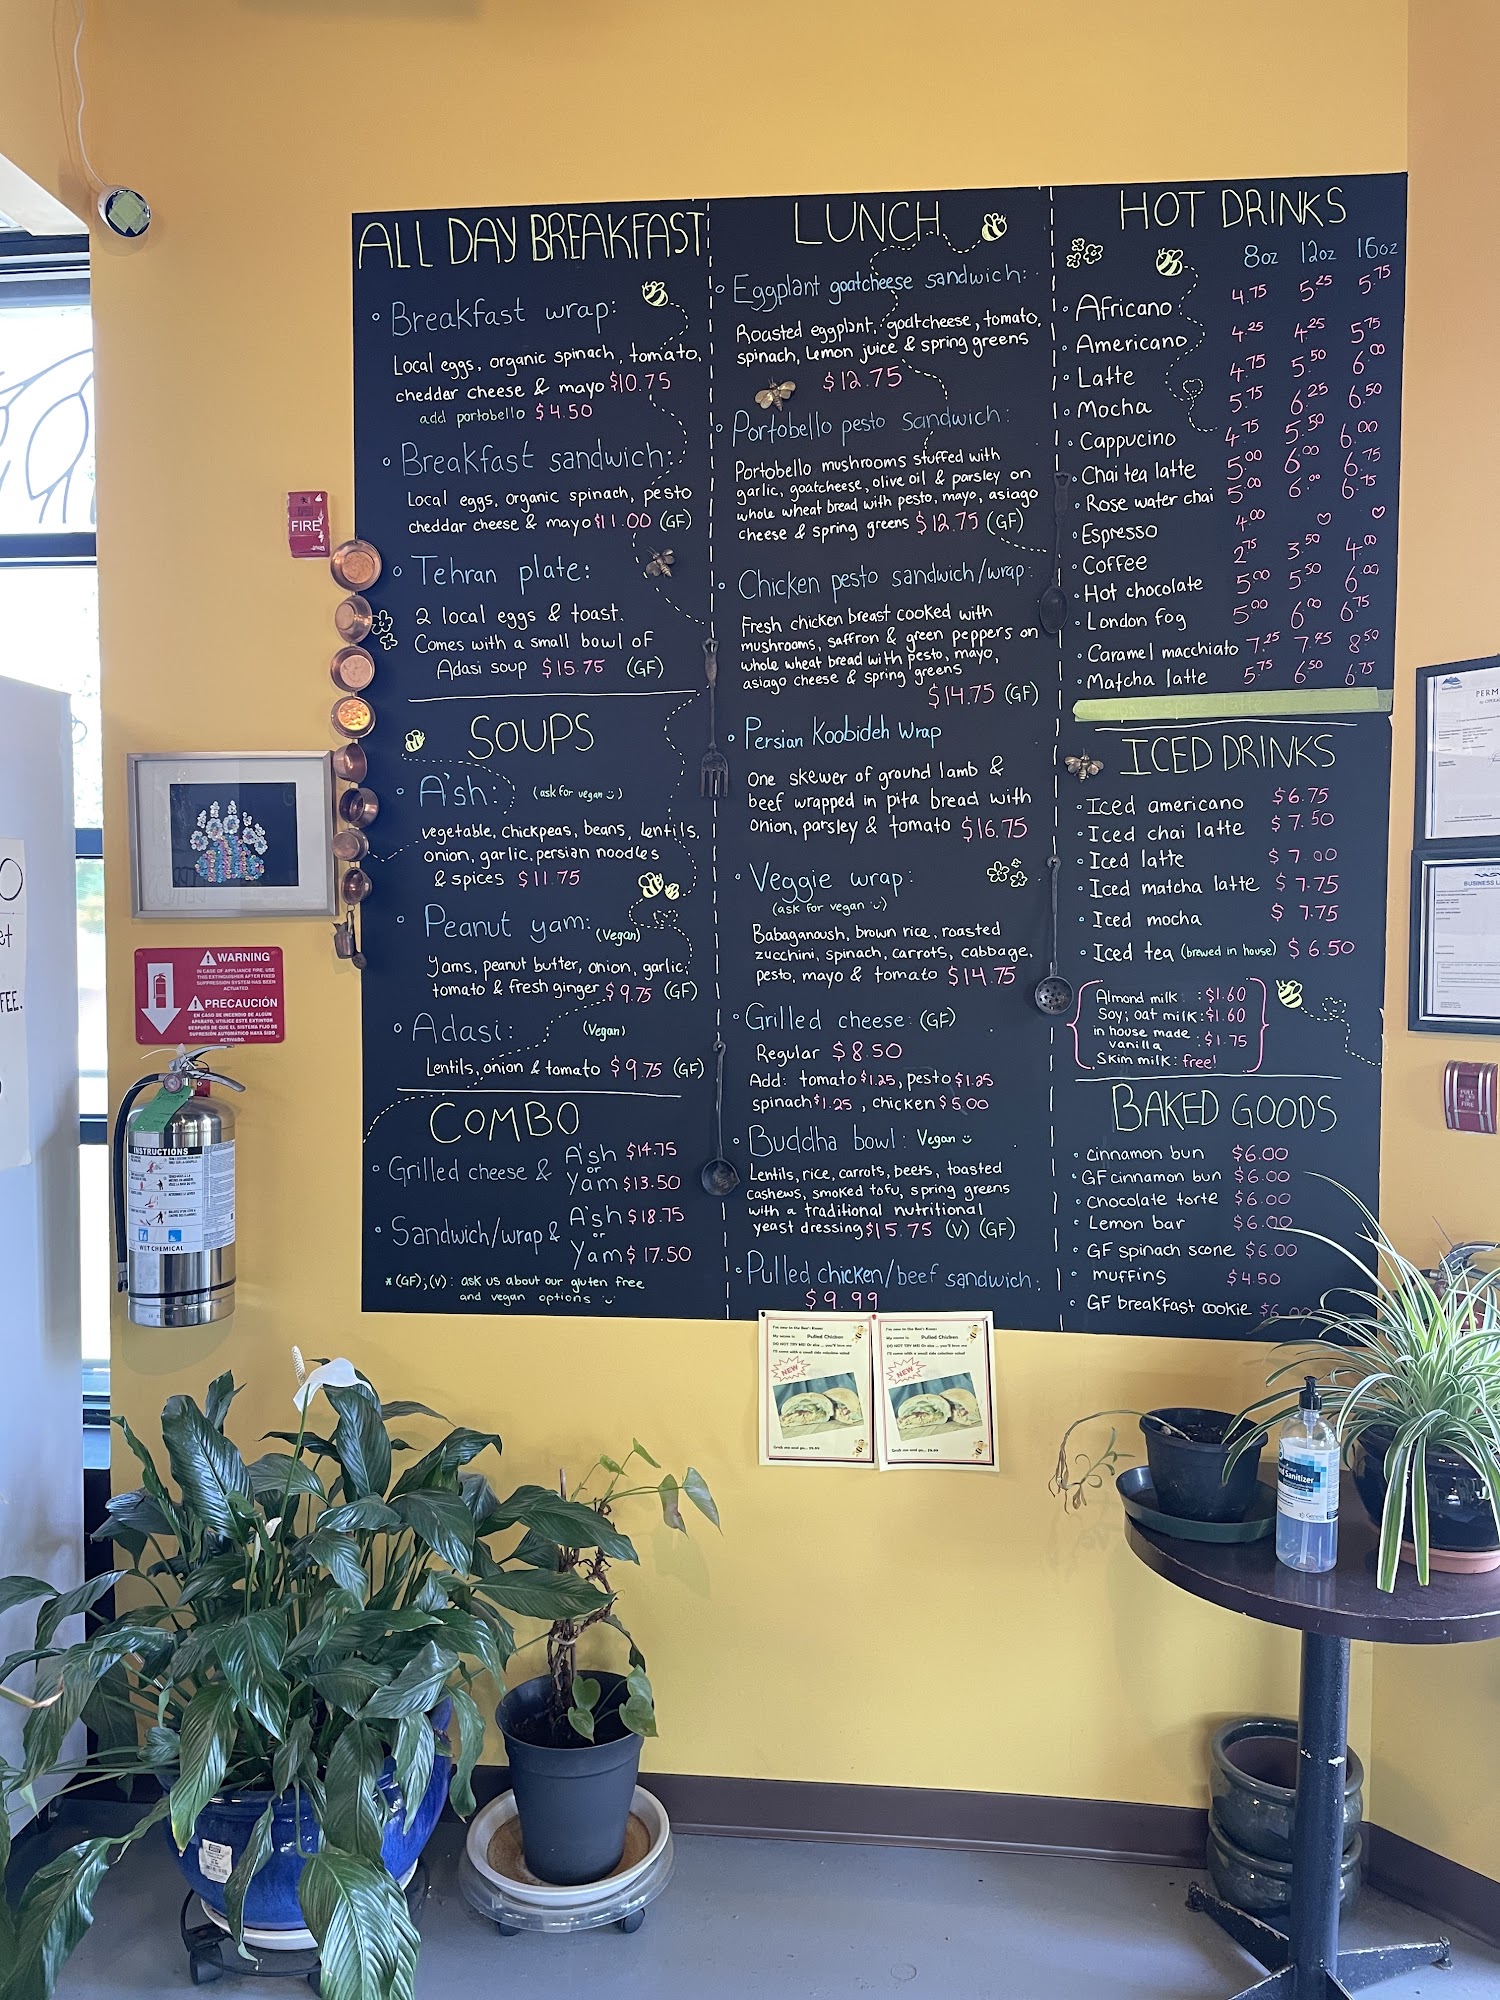 ALL DAY BREAKFAST
Breakfast wrap:
Local eggs, organic spinach, tomato,
cheddar cheese & mayo $10.75
add portobello $4.50
Breakfast sandwich:
Local eggs, organic spinach, pesto
cheddar cheese & mayo $11.00 (GF)
Tehran plate:
2 local eggs & toast.
Comes with a small bowl of
Adasi soup $15.75 (GF)
SOUPS
A'sh: (ask for vegan :)
vegetable, chickpeas, beans, lentils,
onion, garlic, persian noodles
& spices $11.75
Peanut yam: (Vegan)
Yams, peanut butter, onion, garlic,
tomato & fresh ginger $9.75 (GF)
Adasi: (Vegan)
Lentils, onion & tomato $9.75 (GF)
COMBO
Grilled cheese & A'sh $14.75
or
Yam $13.50
Sandwich/wrap & A'sh $18.75
or
Yam $17.50
*(GF),(V): ask us about our gluten free
and vegan options
LUNCH
Eggplant goatcheese sandwich:
Roasted eggplant, goatcheese, tomato,
spinach, lemon juice & spring greens
$12.75
Portobello pesto sandwich:
Portobello mushrooms stuffed with
garlic, goatcheese, olive oil & parsley on
whole wheat bread with pesto, mayo, asiago
cheese & spring greens $12.75 (GF)
Chicken pesto sandwich/wrap:
Fresh chicken breast cooked with
mushrooms, saffron & green peppers on
whole wheat bread with pesto, mayo,
asiago cheese & spring greens
$14.75 (GF)
Persian Koobideh Wrap
One skewer of ground lamb &
beef wrapped in pita bread with
onion, parsley & tomato $16.75
Veggie wrap:
(ask for vegan :)
Babaganoush, brown rice, roasted
zucchini, spinach, carrots, cabbage,
pesto, mayo & tomato $14.75
Grilled cheese: (GF)
Regular $8.50
Add: tomato $1.25, pesto $1.25
spinach $1.25, chicken $5.00
Buddha bowl: Vegan :)
Lentils, rice, carrots, beets, toasted
cashews, smoked tofu, spring greens
with a traditional nutritional
yeast dressing $15.75 (V) (GF)
Pulled chicken/beef sandwich:
$9.99
HOT DRINKS
8oz 12oz 16oz
Africano 4.75 5.25 5.75
Americano 4.25 4.25 5.75
Latte 4.75 5.50 6.00
Mocha 5.75 6.25 6.50
Cappucino 4.75 5.50 6.00
Chai tea latte 5.00 6.00 6.75
Rose water chai 5.00 6.00 6.75
Espresso 4.00 ♡ ♡
Coffee 2.75 3.50 4.00
Hot chocolate 5.00 5.50 6.00
London fog 5.00 6.00 6.75
Caramel macchiato 7.25 7.45 8.50
Matcha latte 5.75 6.50 6.75
ICED DRINKS
Iced americano $6.75
Iced chai latte $7.50
Iced latte $7.00
Iced matcha latte $7.75
Iced mocha $7.75
Iced tea (brewed in house) $6.50
Almond milk : $1.60
Soy, oat milk: $1.60
in house made
vanilla : $1.75
Skim milk: free!
BAKED GOODS
cinnamon bun $6.00
GF cinnamon bun $6.00
chocolate torte $6.00
Lemon bar $6.00
GF spinach scone $6.00
muffins $4.50
GF breakfast cookie $6.00
FIRE
WARNING
IN CASE OF APPLIANCE FIRE, USE
THIS EXTINGUISHER AFTER FIXED
SUPPRESSION SYSTEM HAS BEEN
ACTUATED.
PRECAUCIÓN
EN CASO DE INCENDIO DE ALGÚN
APARATO, UTILICE ESTE EXTINTOR
DESPUÉS DE QUE EL SISTEMA FIJO DE
SUPRESIÓN AUTOMÁTICO HAYA SIDO
ACTIVADO.
INSTRUCTIONS
WET CHEMICAL
FEE.
Pulled Chicken
NEW
Pulled Chicken
NEW
PERM
BUSINESS L
Sanitizer